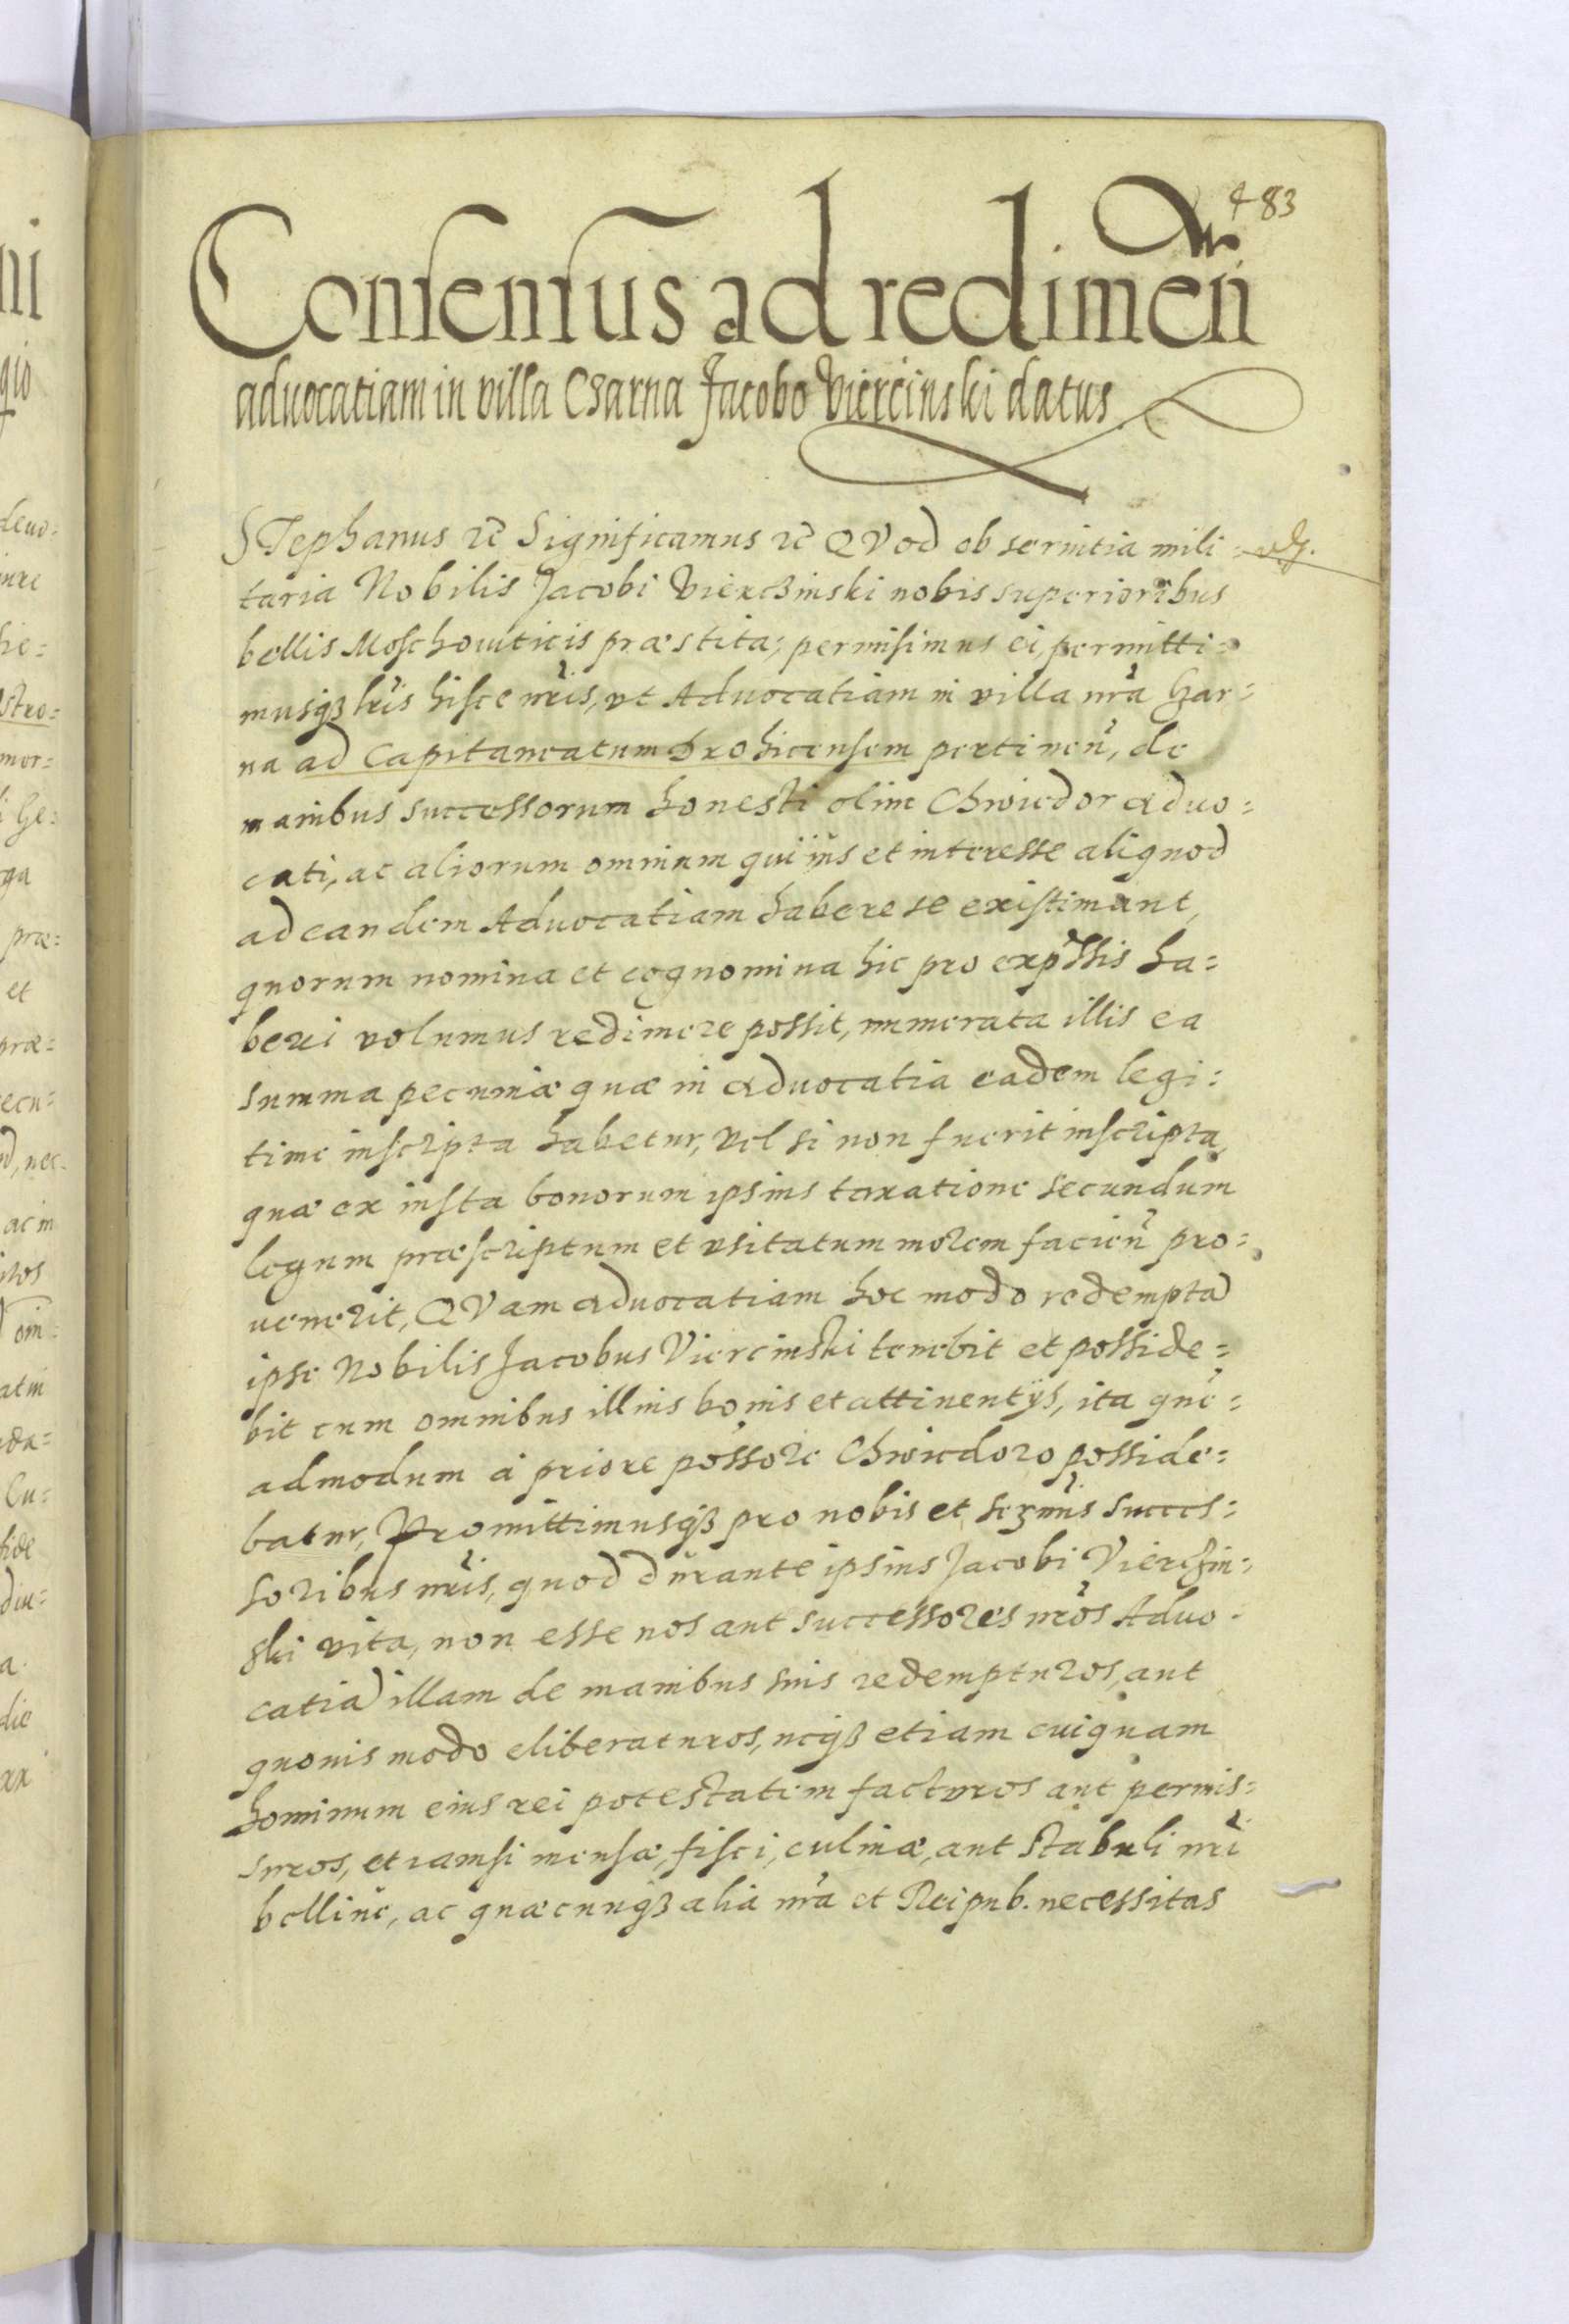 483
Consensus ad redimen̄
advocatiam in villa Czarna Jacobo Viercinski datus
STephanus rc̄ Significamus rc̄ QVod ob seruitia mili:
taria Nobilis Jacobi Vierczinski nobis superioribus
bellis Moschouiticis præstita, permisimus ei, permitti:
musqȝ lr̄is hisce nr̄is, vt Aduocatiam in villa nr̄a Czar:
na ad Capitaneatum Drohicensem pertinen̄, de
manibus successorum honesti olim Chwiedor aduo:
cati, ac aliorum omnium qui ius et interesse aliquod
ad eandem Aduocatiam habere se existimant,
quorum nomina et cognomina hic pro exp̄ssis ha:
beri volumus redimere possit, numerata illis ea
summa pecuniæ quæ in aduocatia eadem legi:
time inscripta habetur, vel si non fuerit inscripta,
quæ ex iusta bonorum ipsius taxatione secundum
legum præscriptum et vsitatum morem facien̄ pro:
uenerit, QVam aduocatiam hoc modo redemptā
ipse Nobilis Jacobus Viercinski tenebit et posside:
bit cum omnibus illius bonis et attinentijs, ita quē:
admodum à priore possore Chwiedoro posside:
batur, Promittimusqȝ pro nobis et serm̄is succes:
soribus nr̄is, quod durante ipsius Jacobi Vierczin:
ski vita, non esse nos aut successores nr̄os Aduo:
catiā illam de manibus suis redempturos, aut
quouis modo eliberaturos, neqȝ etiam cuiquam
hominum eius rei potestatem facturos aut permis:
suros, etiamsi mensæ, fisci, culinæ, aut stabuli nr̄i
belliue, ac quæcunqȝ alia nr̄a et Reipub. necessitas